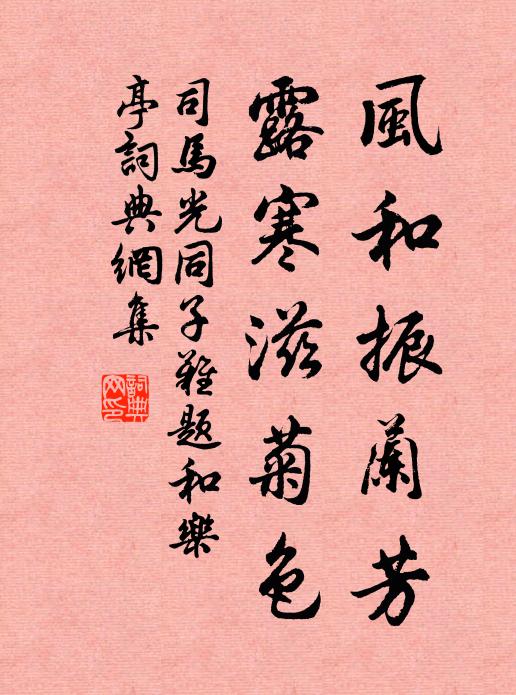 風和振蘭芳
露寒滋菊色
司馬光同子難題和樂
亭詞典網集
詞典網印